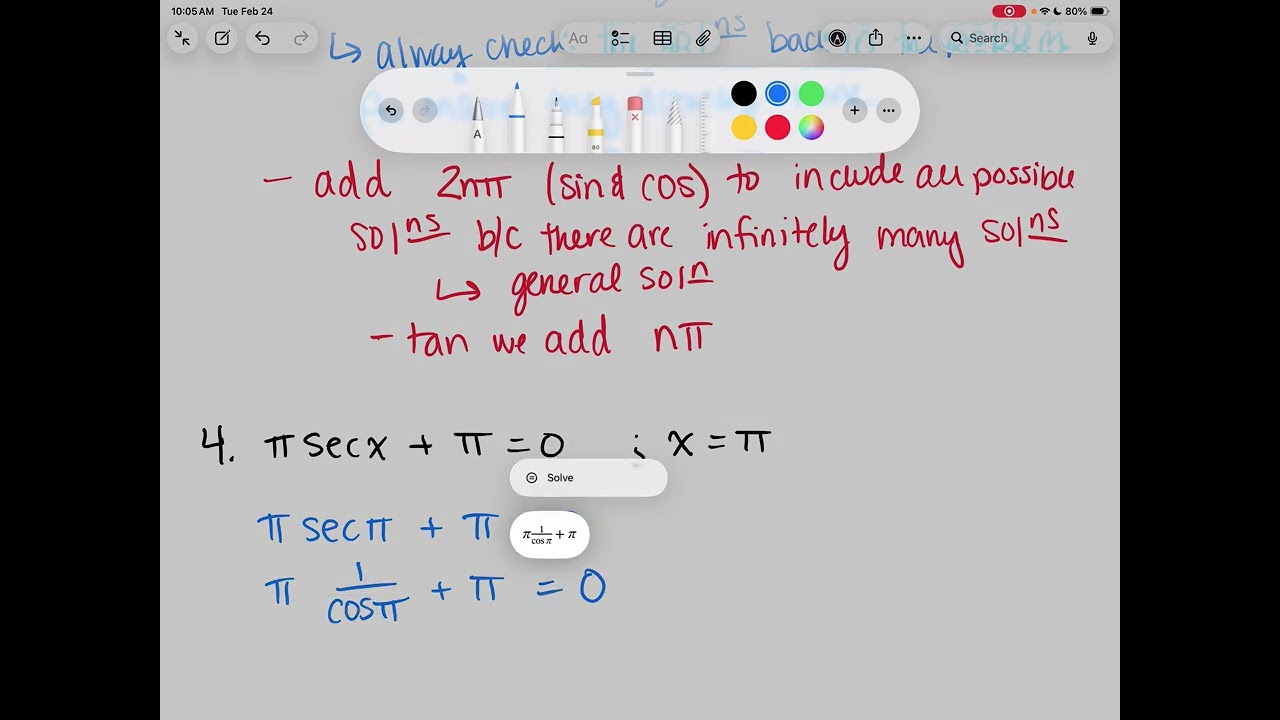 10:05 AM Tue Feb 24
80%
Aa
Search
↳ alway check
A
80
- add 2nπ (sin & cos) to include all possible
solns b/c there are infinitely many solns
↳ general soln
- tan we add nπ
4. π sec x + π = 0 ; x = π
Solve
π sec π + π
π 1/cos π + π
π 1/cos π + π = 0